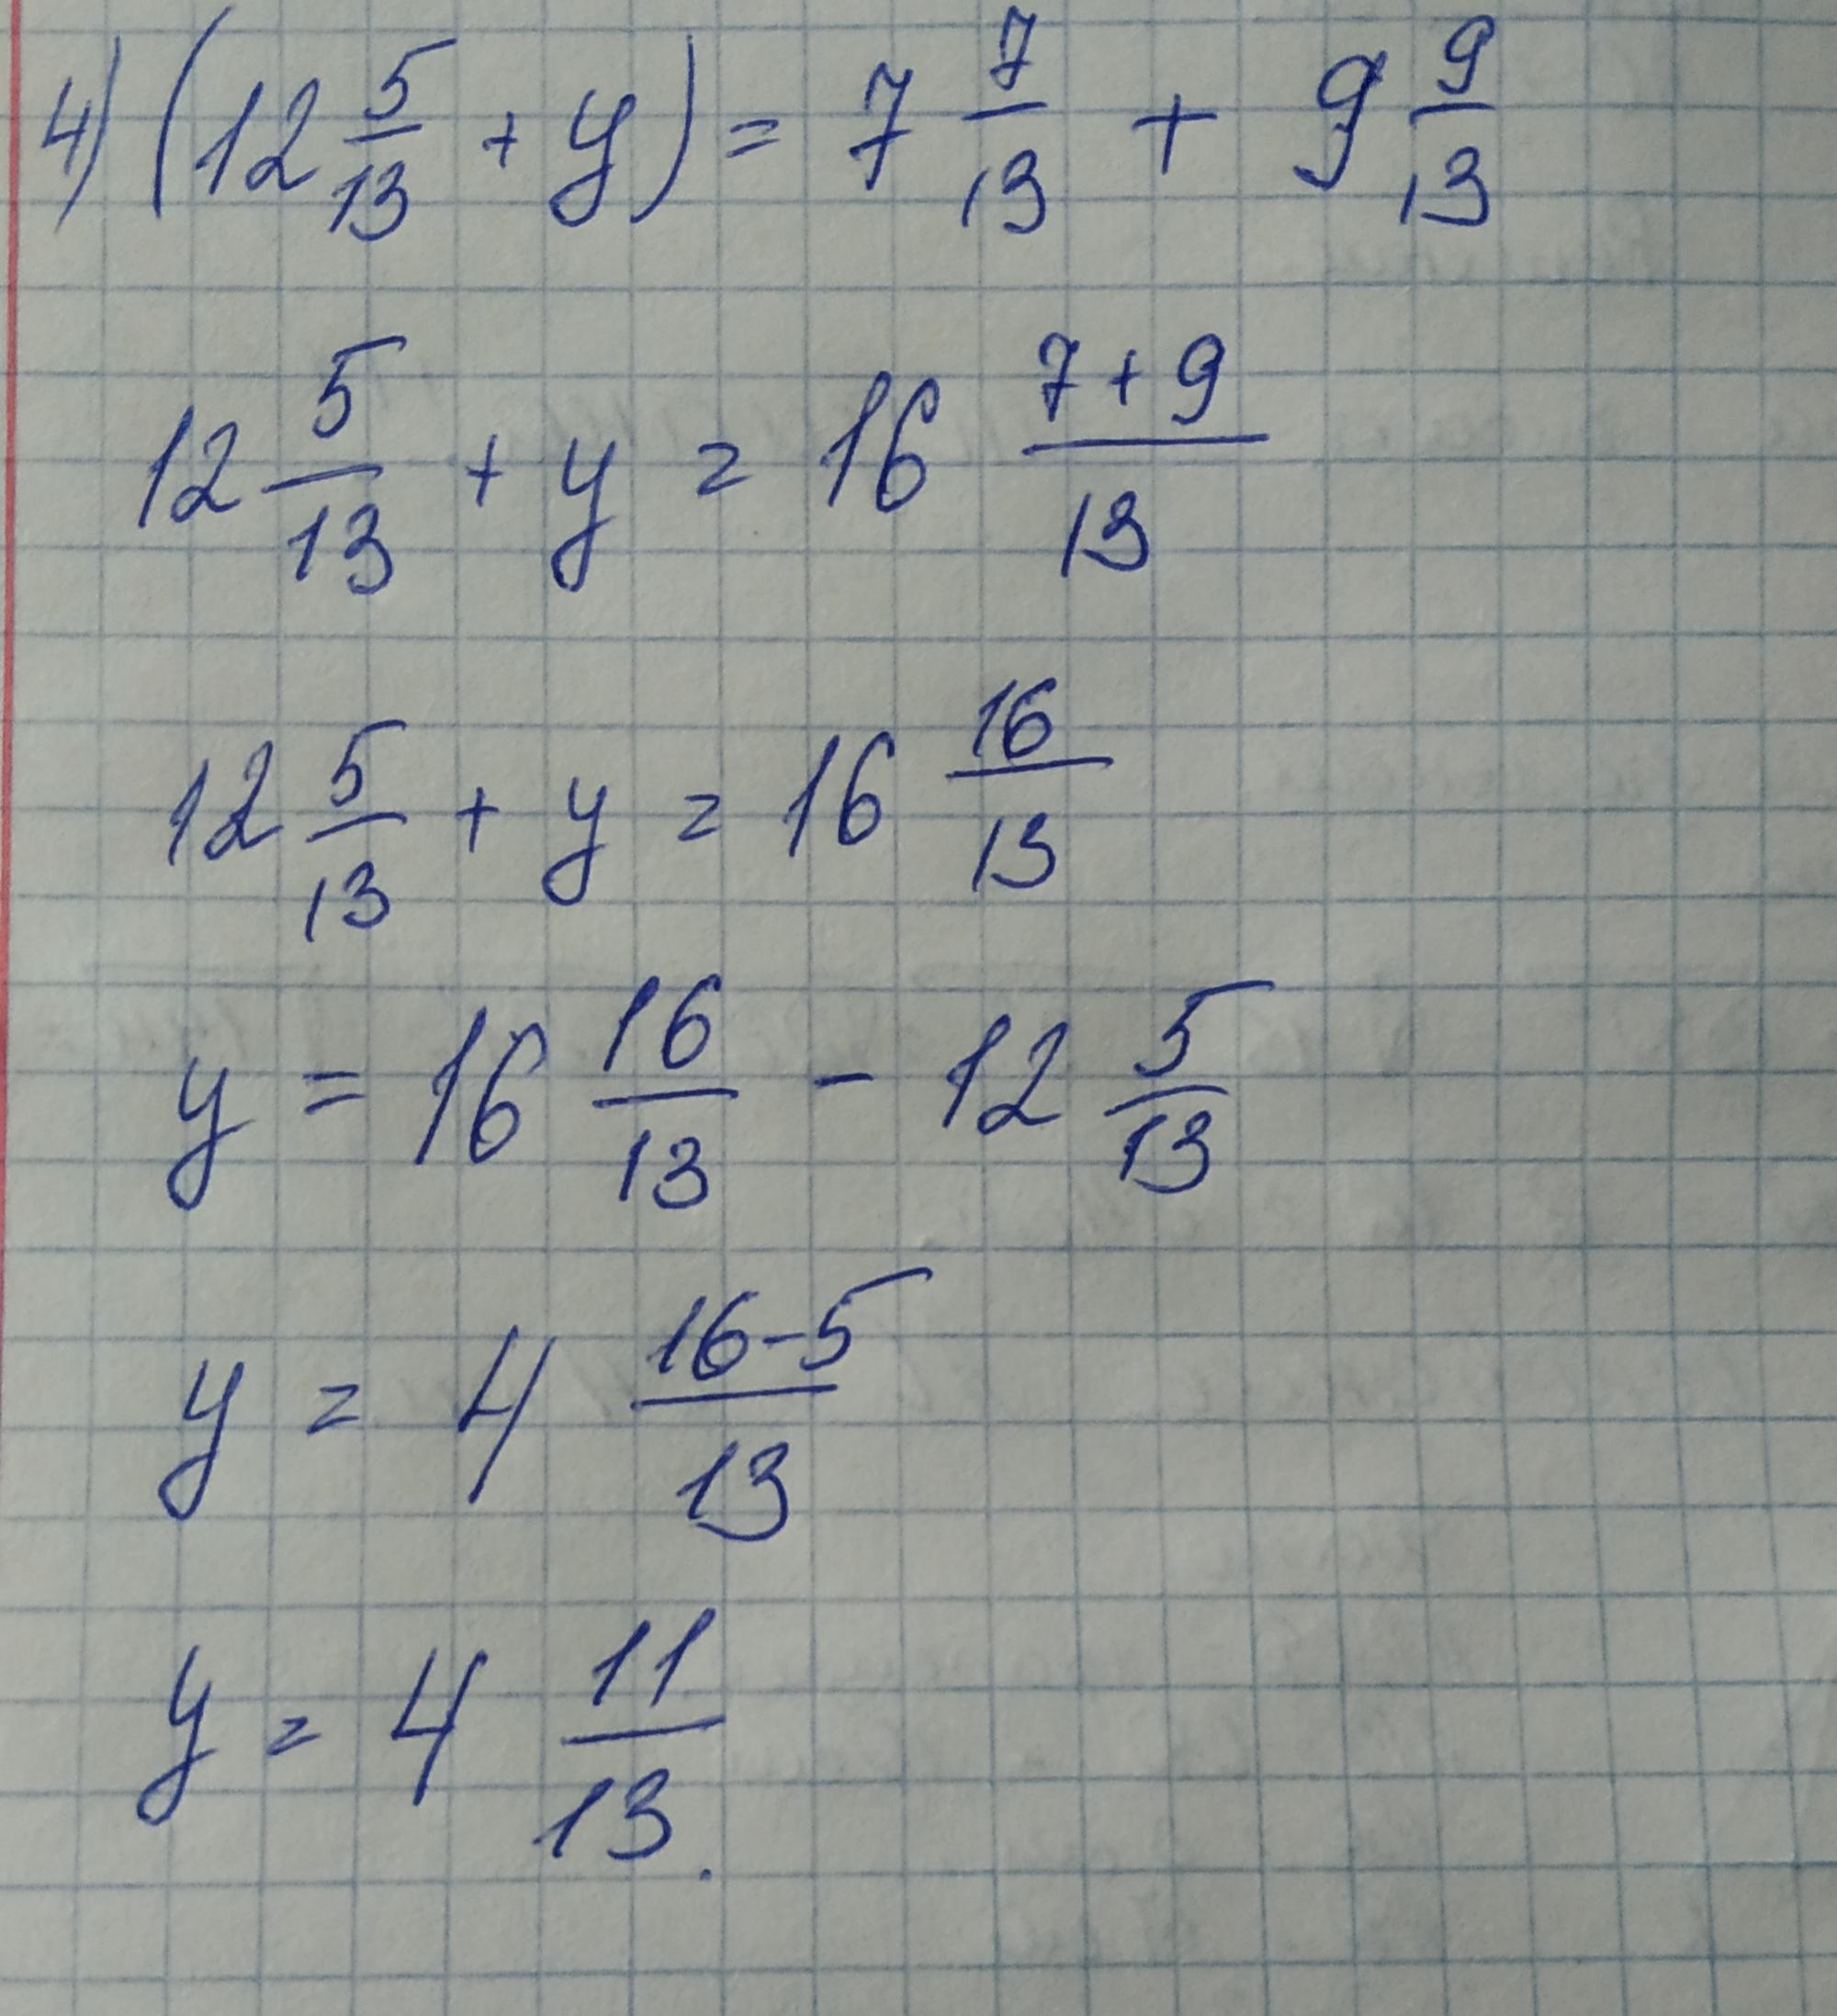 4) (12 5/13 + y) = 7 7/13 + 9 9/13
12 5/13 + y = 16 (7+9)/13
12 5/13 + y = 16 16/13
y = 16 16/13 - 12 5/13
y = 4 (16-5)/13
y = 4 11/13.